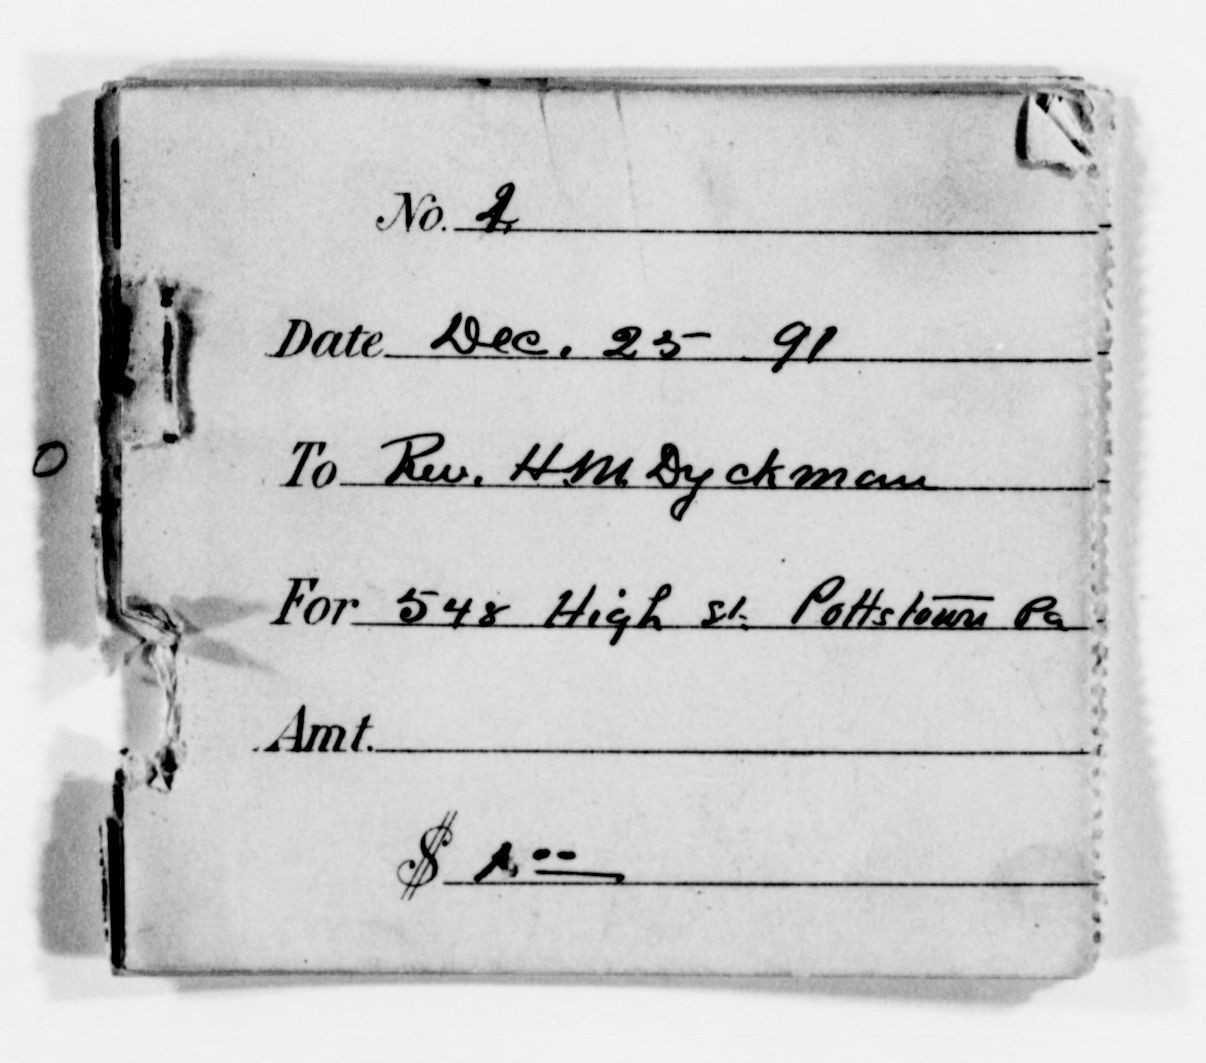 No. 2
Date Dec. 25 91
To Rev. H.M. Dyckman
For 548 High St. Pottstown Pa
Amt.
$ 1.00
0